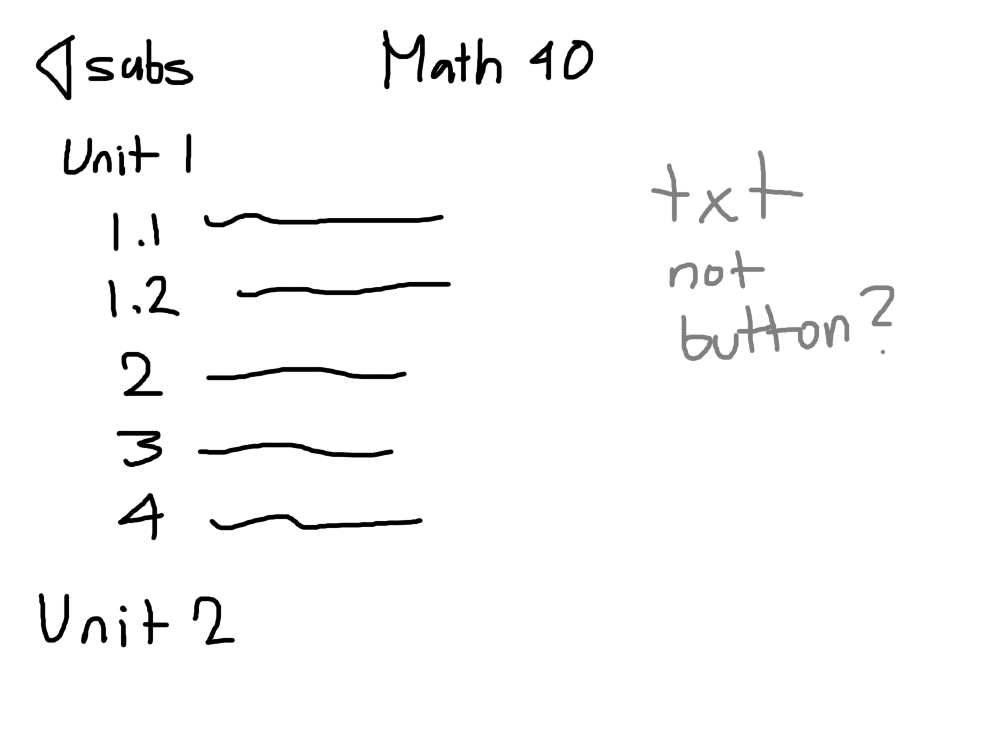 subs Math 40
Unit 1
1.1
1.2
2
3
4
Unit 2
txt
not
button?